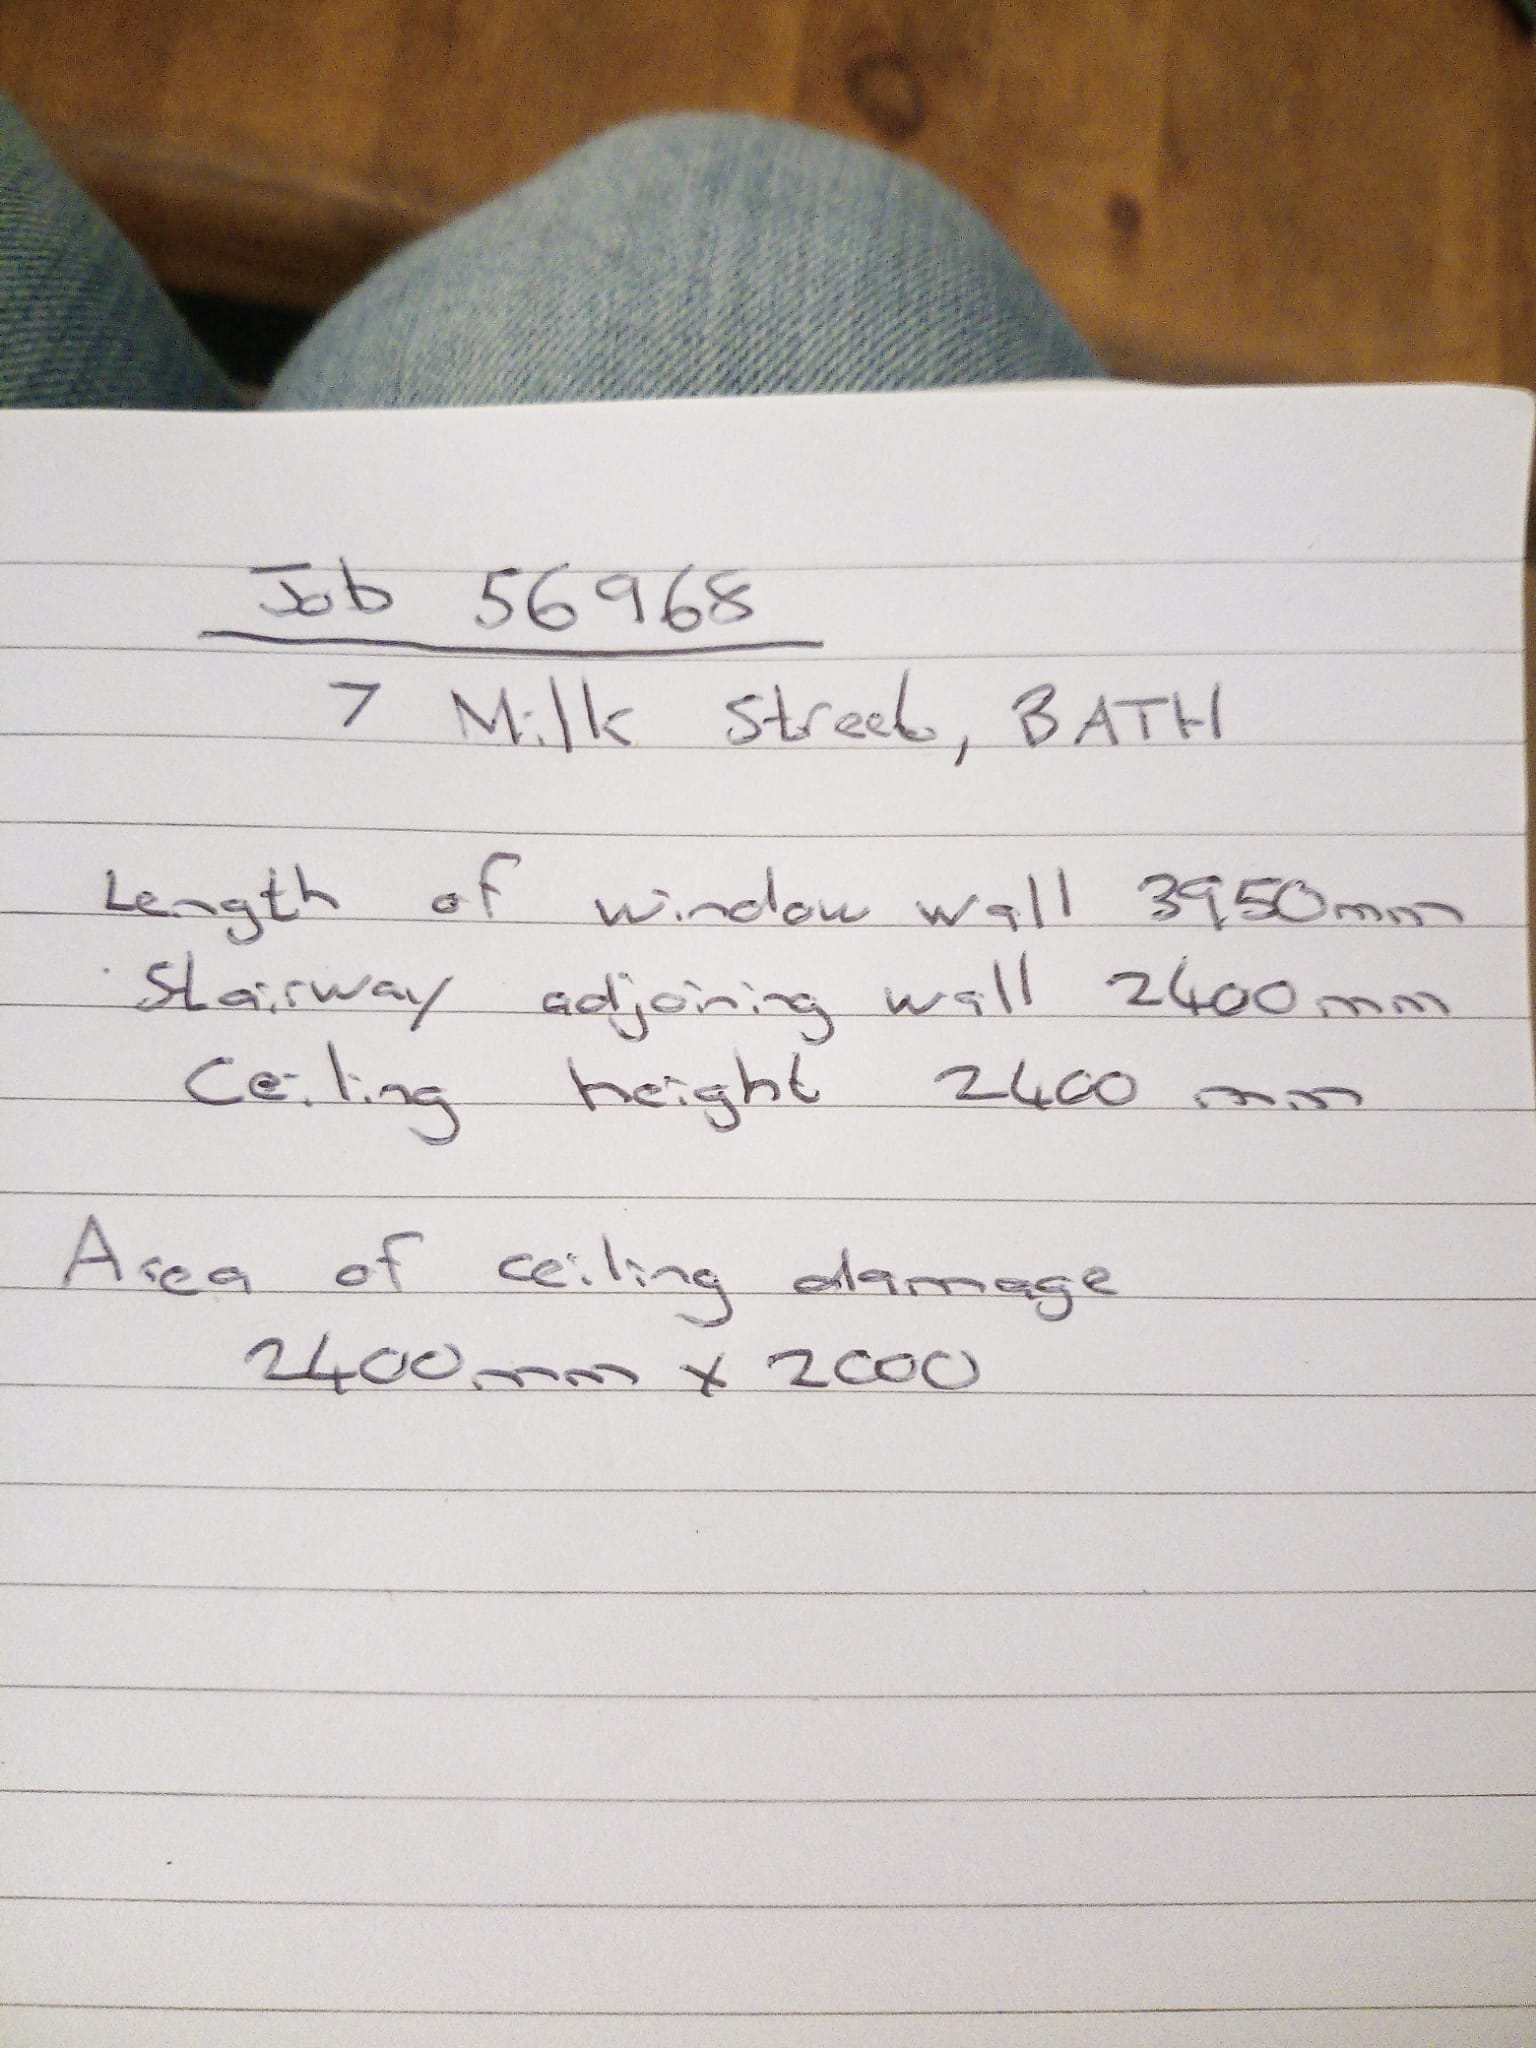 Job 56968
7 Milk Street, BATH
Length of window wall 3950mm
Stairway adjoining wall 2400mm
Ceiling height 2400 mm
Area of ceiling damage
2400mm x 2000